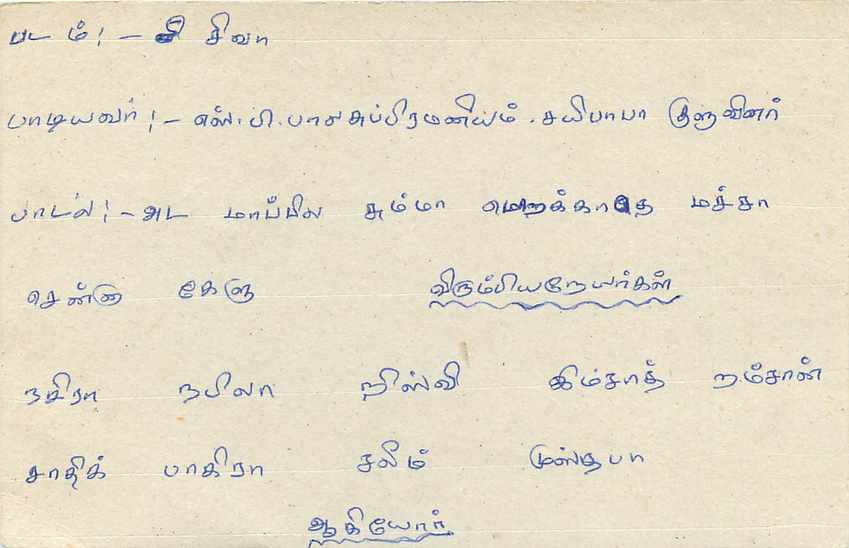 படம்:- சிவா
பாடியவர்:- எஸ்.பி.பாலசுப்பிரமணியம். சயிபாபா குளுவினர்
பாடல்:- அட மாப்பில சும்மா மெறக்காதே மச்சா
சென்னு கேளு விரும்பியறேயர்கள்
நசிரா நபிலா றிஸ்வி கிம்சாத் றம்சான்
சாதிக் பாகிரா சலீம் முஸ்தபா
ஆகியோர்